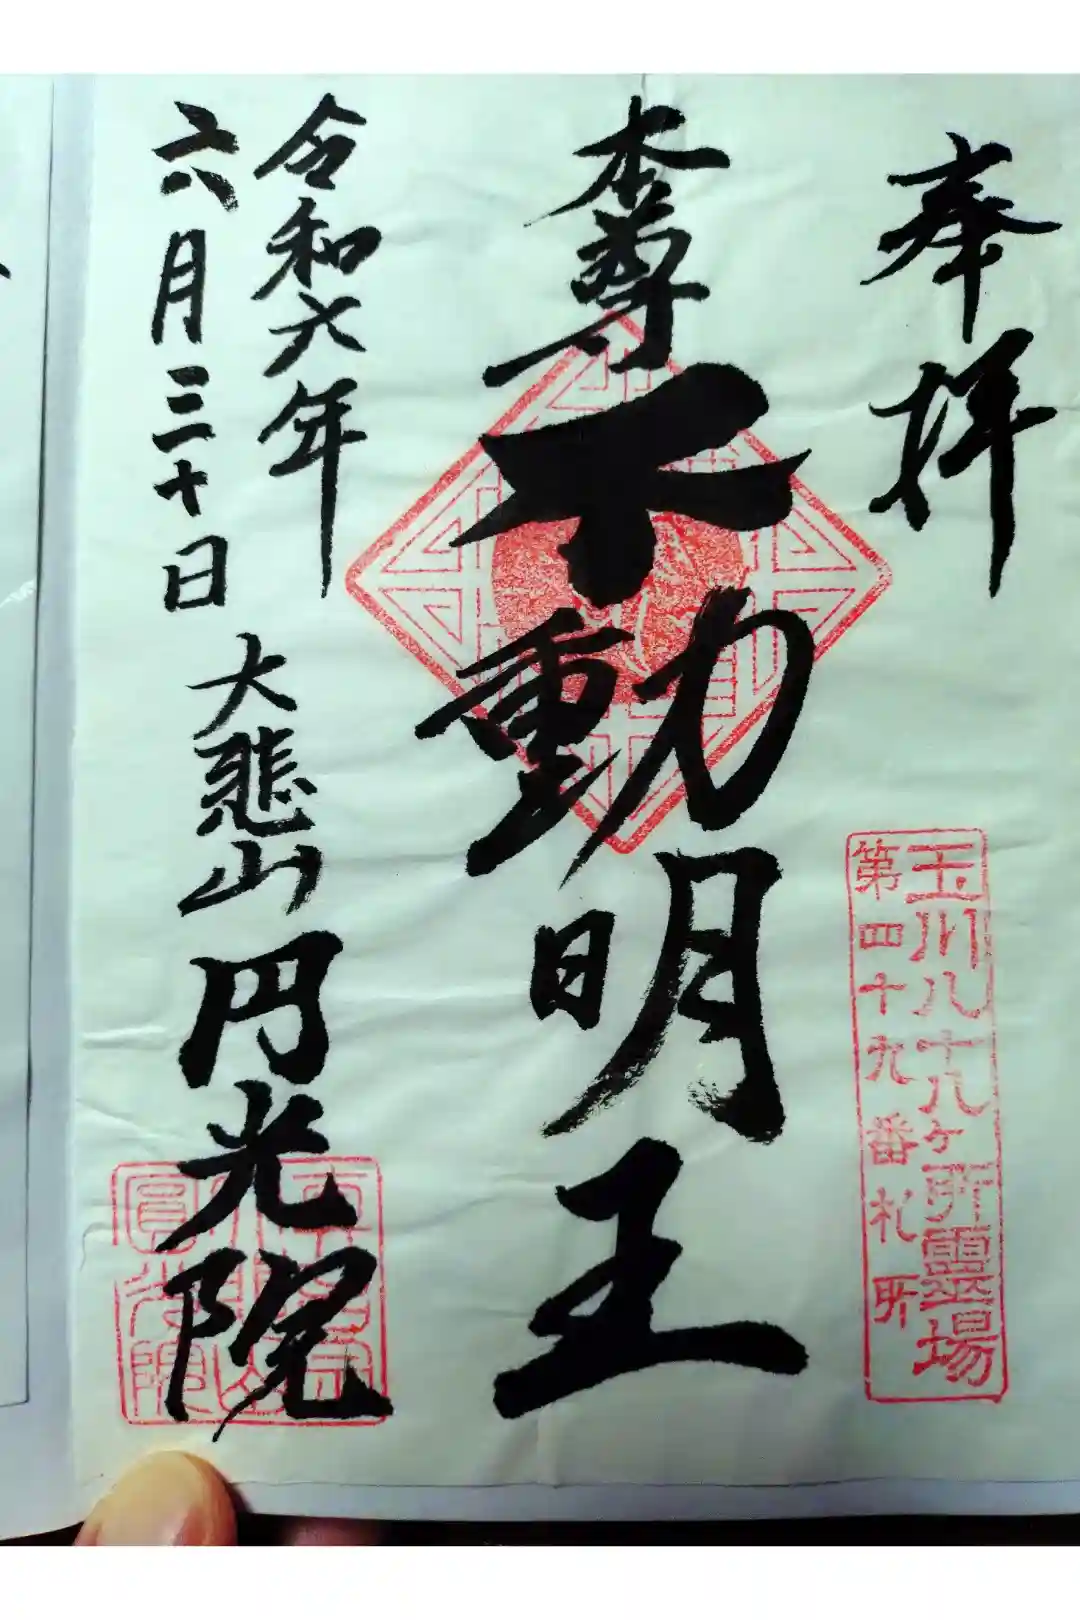 奉拝
玉川八十八ヶ所霊場
第四十九番札所
本尊不動明王
令和六年
六月三十日
大悲山円光院
圓光院